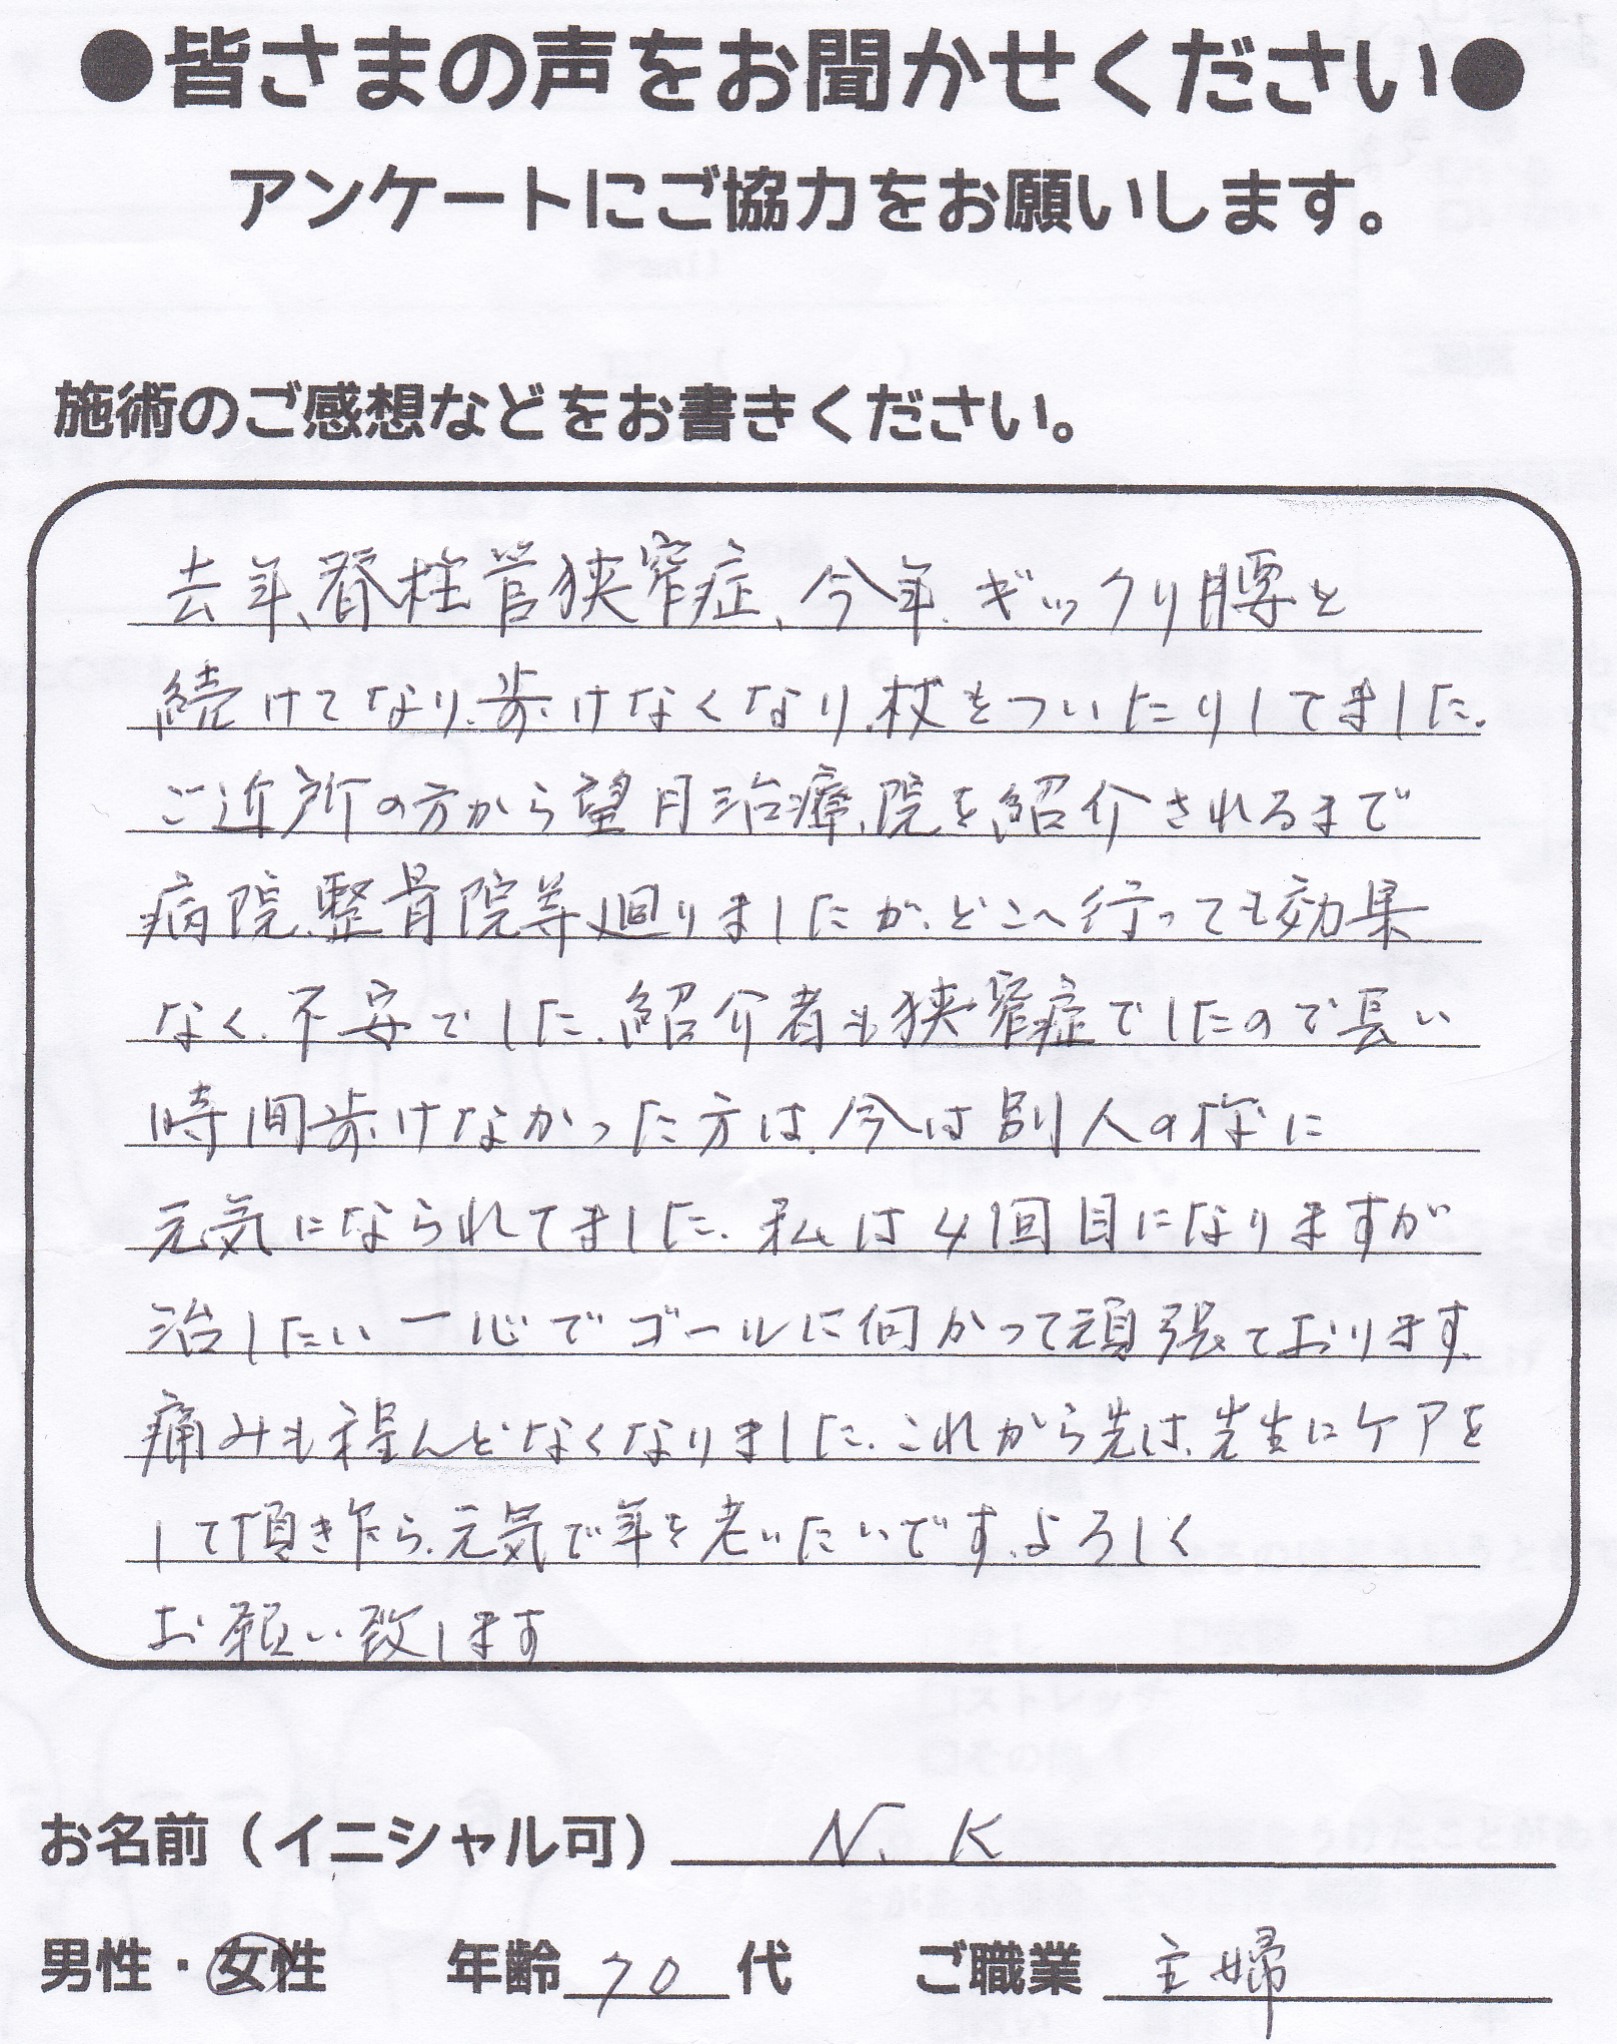 ●皆さまの声をお聞かせください●
アンケートにご協力をお願いします。
施術のご感想などをお書きください。
去年、脊柱管狭窄症、今年、ギックリ腰と
続けてなり、歩けなくなり、杖をついたりしてました。
ご近所の方から望月治療院を紹介されるまで
病院、整骨院等廻りましたが、どこへ行っても効果
なく、不安でした。紹介者も狭窄症でしたので長い
時間歩けなかった方は、今は別人の様に
元気になられてました。私は4回目になりますが
治したい一心でゴールに向かって頑張ております。
痛みも程んどなくなりました。これから先は、先生にケアを
して頂き乍ら、元気で年を老いたいです。よろしく
お願い致します
お名前（イニシャル可） N. K
男性・女性 年齢 70 代 ご職業 主婦